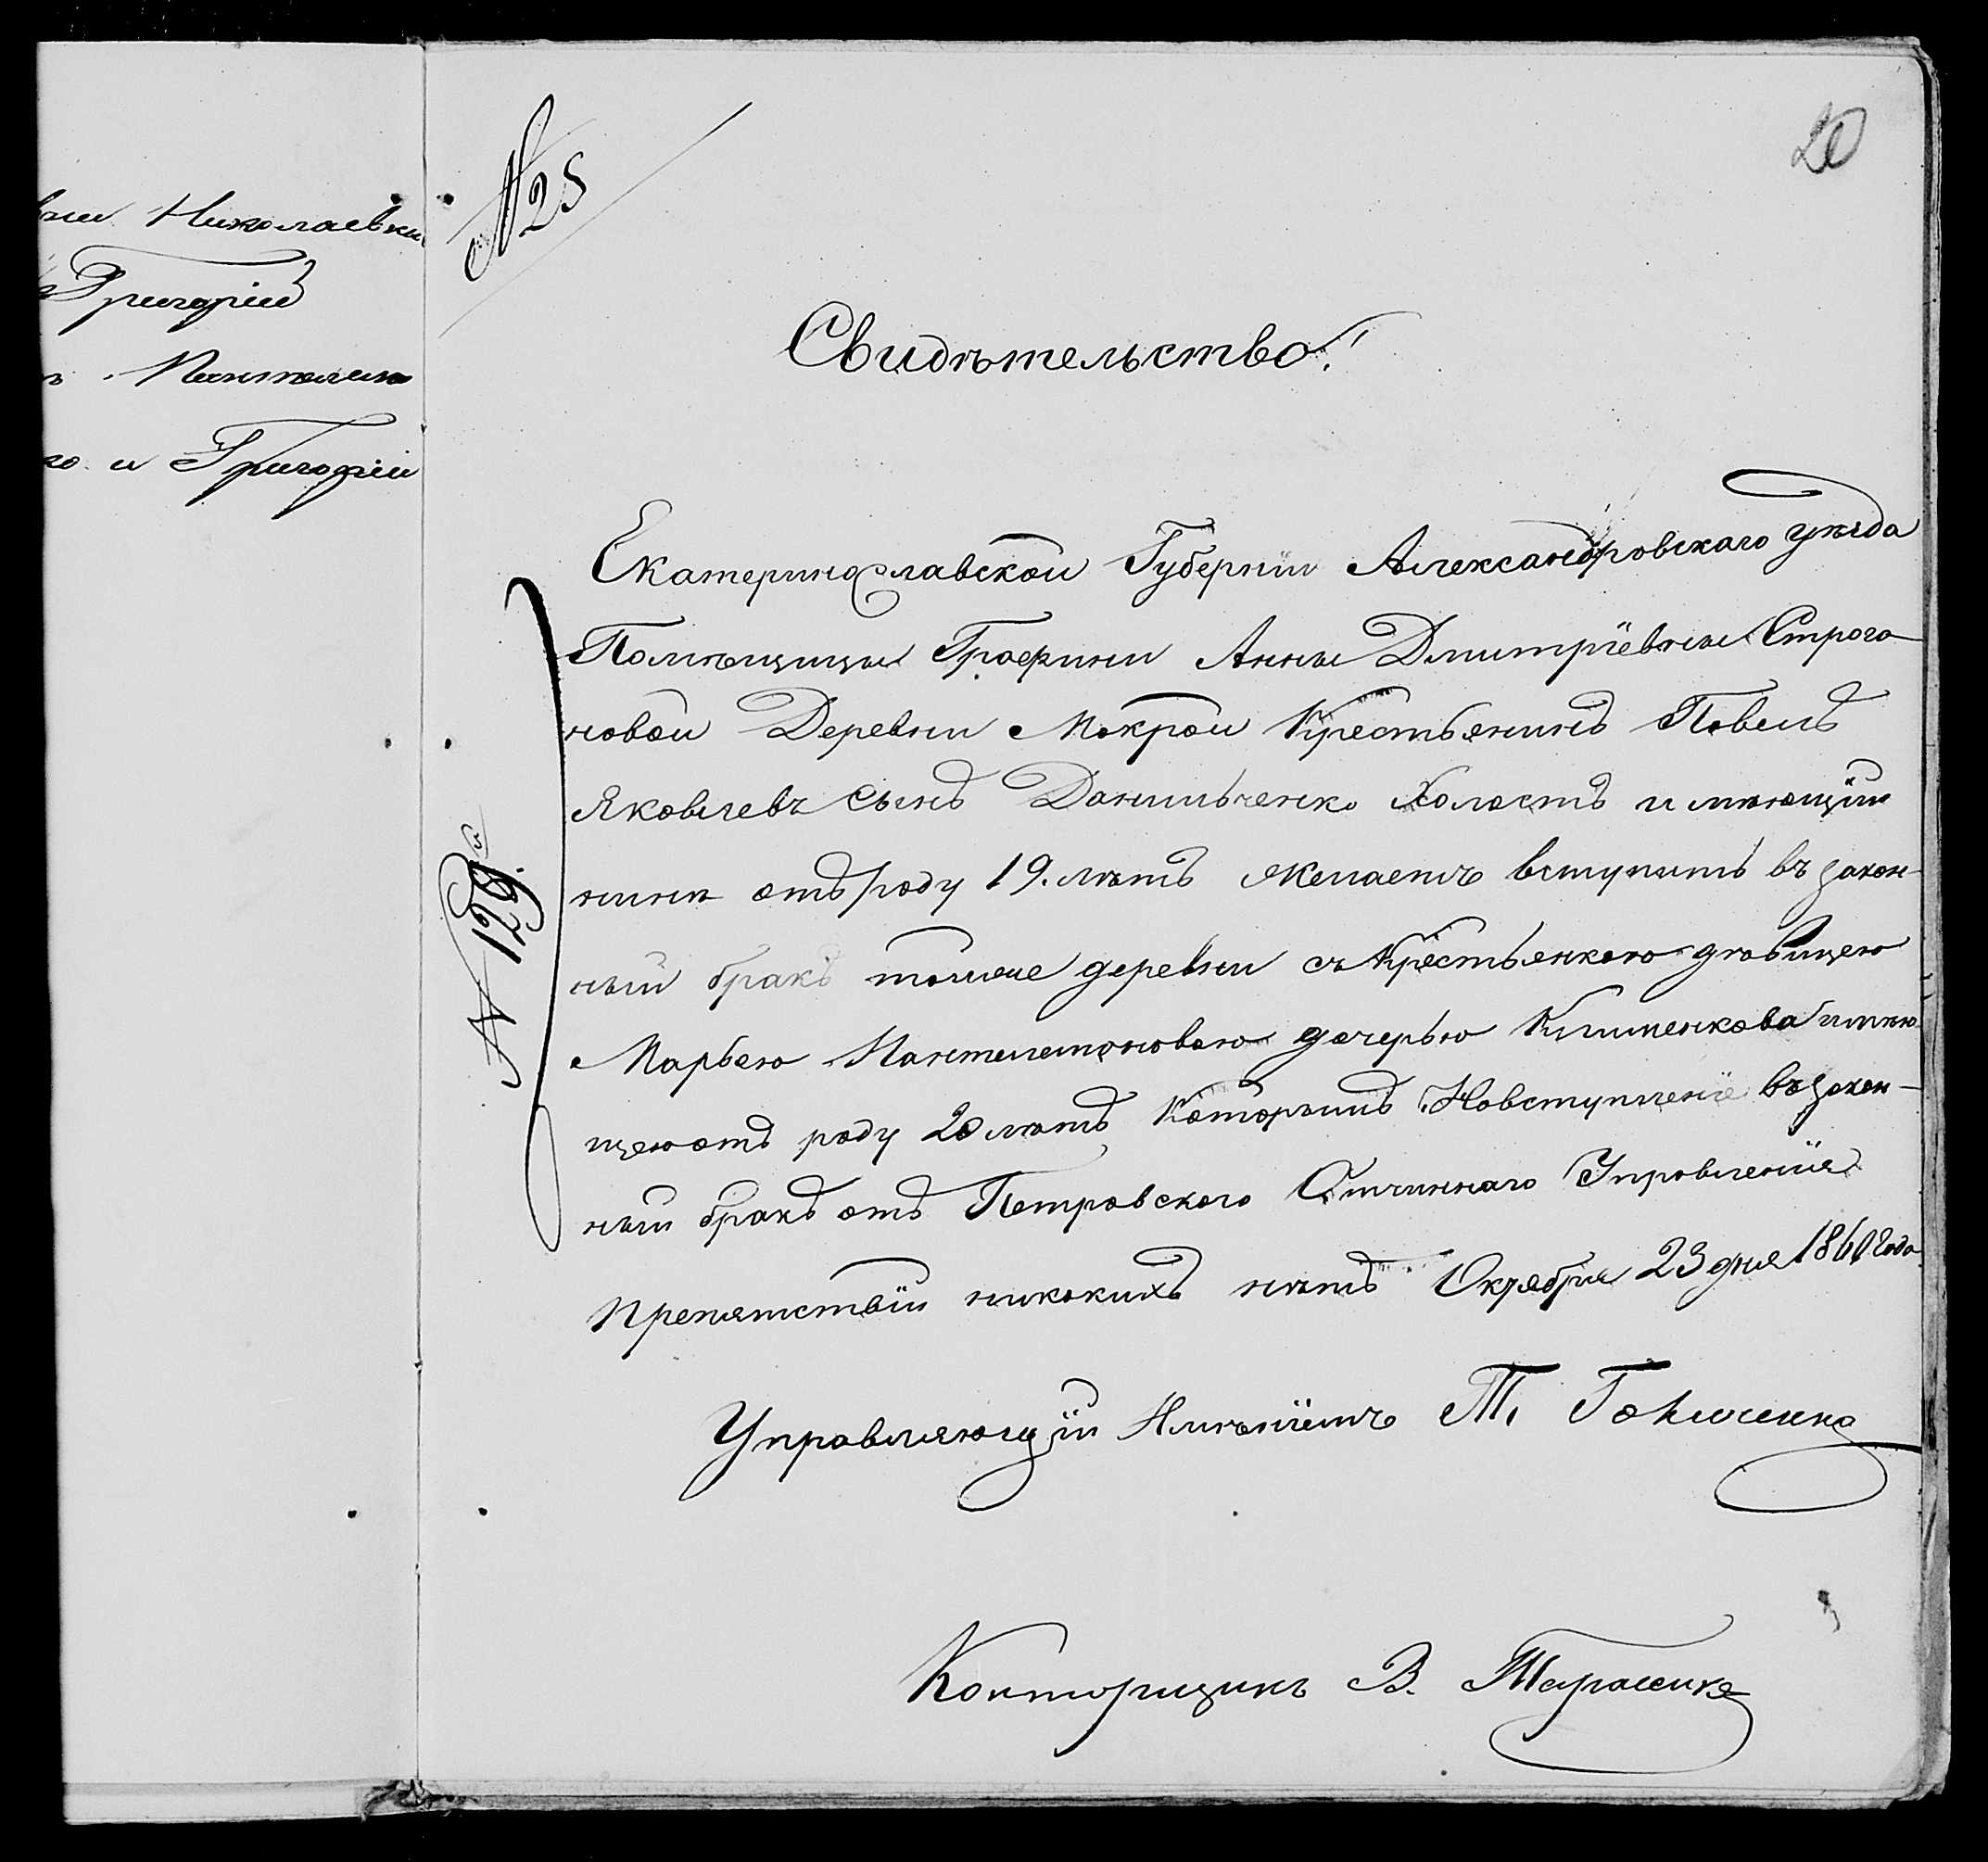 Николаевки
Григорій
Пантелим
го и Григорій
№ 25
20
Свидѣтельство.
Екатеринославской Губерніи Александровскаго уѣзда
Помѣщицы Графини Анны Дмитріевны Строго-
новой Деревни Мокрой Крестьянинъ Павелъ
Яковлевъ Сынъ Данильченко Холостъ имѣющій
нынѣ отъ роду 19. лѣтъ Желаетъ вступить въ закон-
ный бракъ тойже деревни съ Крестьянкою дѣвицею
Марѳою Пантелемоновою дочерью Клименкова имѣю-
щею отъ роду 20 лѣтъ Которымъ Новступленіе въ закон-
ный бракъ отъ Петровского Отчиннаго Управленія
препятствій никокихъ нѣтъ Октября 23 дня 1860 Года
№ 129.
Управляющій Имѣніемъ Т.
Конторщикъ В. Тарасенко